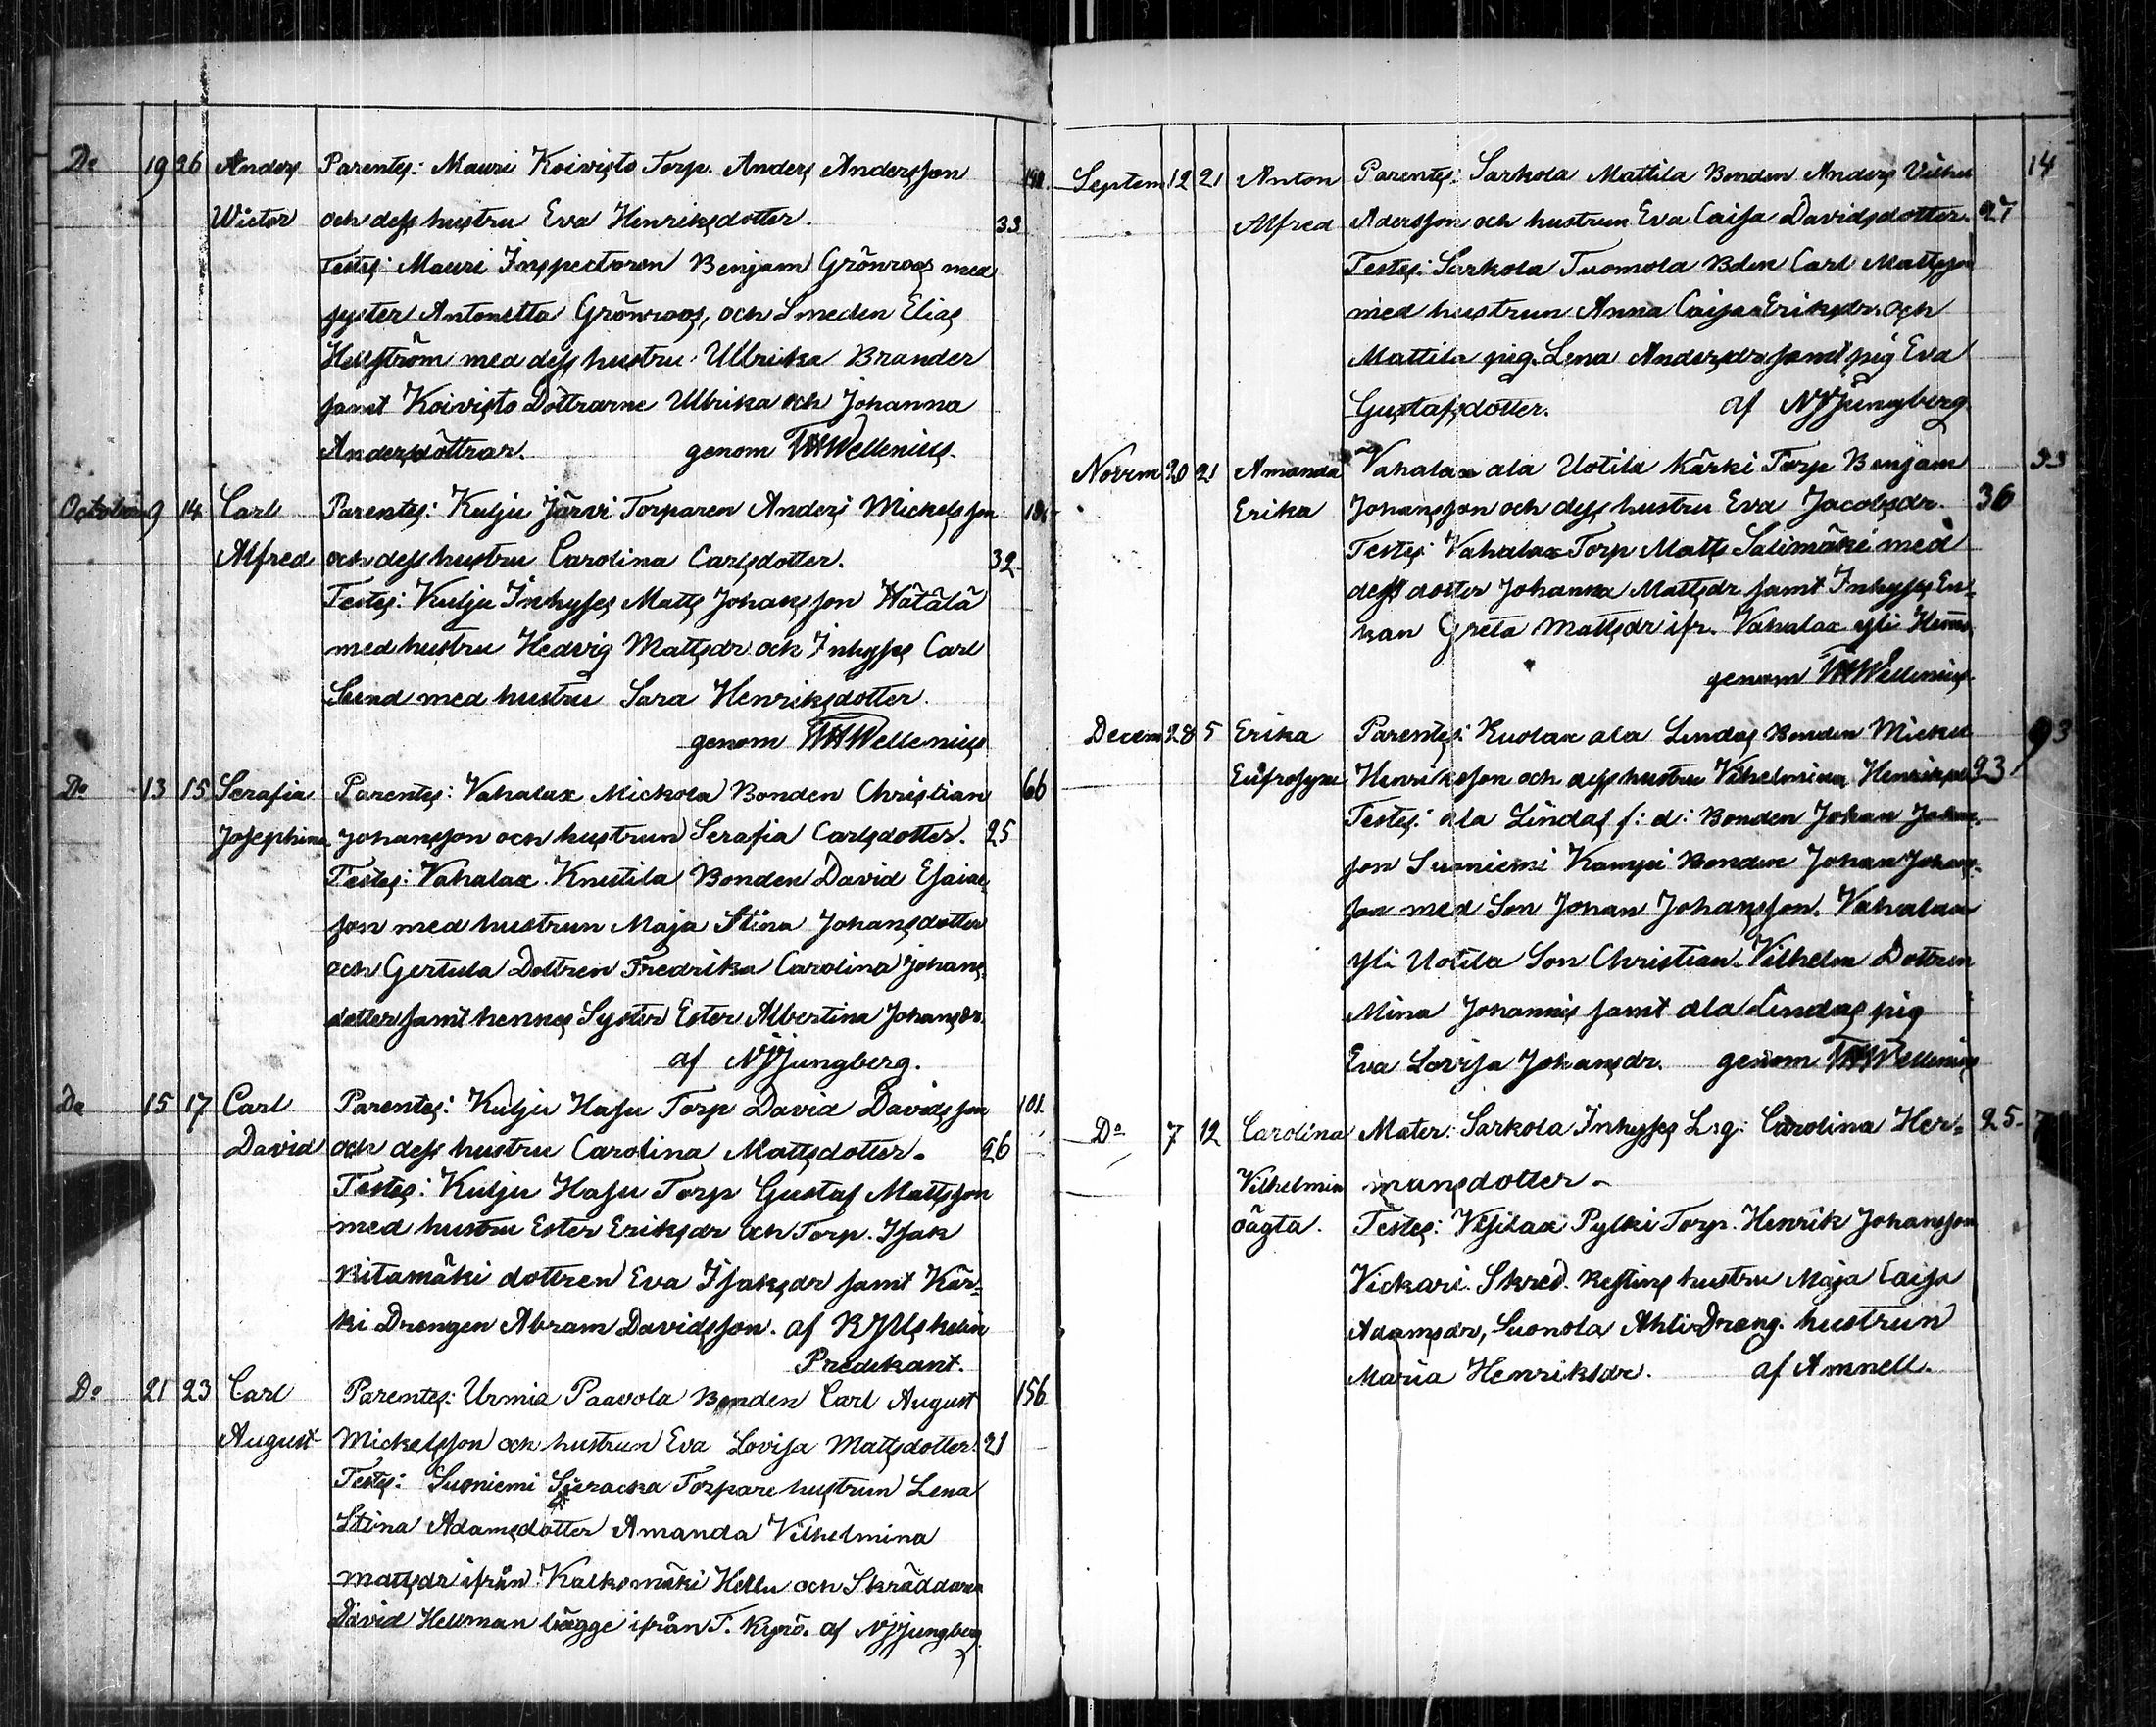 Do 19 26 Anders Parentes: Mauri Koivisto Torp. Anders Andersson
Wictor och dess hustru Eva Henriksdotter. 33
Testes: Mauri Inspectoren Benjam Grönroos med
syster Antonetta Grönroos, och Smeden Elias
Hellström med dess hustru Ullrika Brander
samt Koivisto Döttrarne Ullrika och Johanna
Andersdöttrar. genom Wellenius.
October 9 14 Carl Parentes: Kulju Järvi Torparen Anders Mickelsson
Alfred och dess hustru Carolina Carlsdotter. 32
Testes: Kulju Inhyses Matts Johansson Hätälä
med hustru Hedvig Mattsdr och Inhyses Carl
Sund med hustru Sara Henriksdotter.
genom Wellenius
Do 13 15 Serafia Parentes: Vahalax Mickola Bonden Christian 66
Josephina Johansson och hustrun Serafia Carlsdotter. 25
Testes: Vahalax Knutila Bonden David Esaias
son med hustrun Maja Stina Johansdotter
och Gertula Dottren Fredrika Carolina Johans
dotter samt hennes Syster Ester Albertina Johansdr.
af NJjungberg.
Do 15 17 Carl Parentes: Kulju Hasu Torp David Davidsson 101
David och dess hustru Carolina Mattsdotter. 26
Testes: Kulju Hasu Torp Gustaf Mattsson
med hustru Ester Eriksdr och Torp. Isak
Ritamäki dottren Eva Isaksdr samt Kär-
ki Drengen Abram Davidsson. af
Predikant.
Do 21 23 Carl Parentes: Urmia Paavola Bonden Carl August 156
August Mickelsson och hustrun Eva Lovisa Mattsdotter. 21
Testes: Suoniemi Torpare hustrun Lena
Stina Adamsdotter Amanda Vilhelmina
mattsdr ifrån Kalkemäki Hellu och Skräddaren
David Hellman bägge ifrån T. Kyrö. af NJjungberg
Septem 12 21 Anton Parentes: Sarkola Mattila Bonden Anders Vilhel 14
Alfred Adersson och hustrun Eva Caisa Davidsdotter. 27
Testes: Sarkola Tuomola Bden Carl Mattsson
med hustrun Anna Caisa Eriksdr. och
Mattila pig. Lena Andersdr samt pig Eva
Gustafsdotter. af NJjungberg
Novem 20 21 Amanda Vahalax ala Uotila Kärki Torp Benjam 33
Erika Johansson och dess hustru Eva Jacobsdr. 36
Testes: Vahalax Torp Matts Salimäki med
dess dotter Johanna Mattsdr samt Inhyses En-
kan Greta Mattsdr ifr. Vahalax yli
genom Wellenius.
Decem 28 5 Erika Parentes: Kuolax ala Lindas Bonden Mickel 93
Eufrosyne Henriksson och dess hustru Vilhelmina 23
Testes: ala Lindas f: d: Bonden Johan Johan-
son Suniemi Bonden Johan Johans-
son med Son Johan Johansson. Vahalax
Yli Uotila Son Christian Vilhelm Dottren
Mina Johannis samt ala Lindas pig
Eva Lovisa Johansdr. genom Wellenius
Do 7 12 Carolina Mater: Sarkola Inhyses L:g: Carolina Her- 25. 7
Vilhelmin mansdotter.
oägta. Testes: Vesilax Pylki Torp. Henrik Johansson
Vickari Skred. hustru Maja Caisa
Adamsdr, Suonola Ahti Dreng. hustrun
Maria Henriksdr. af Amnell.